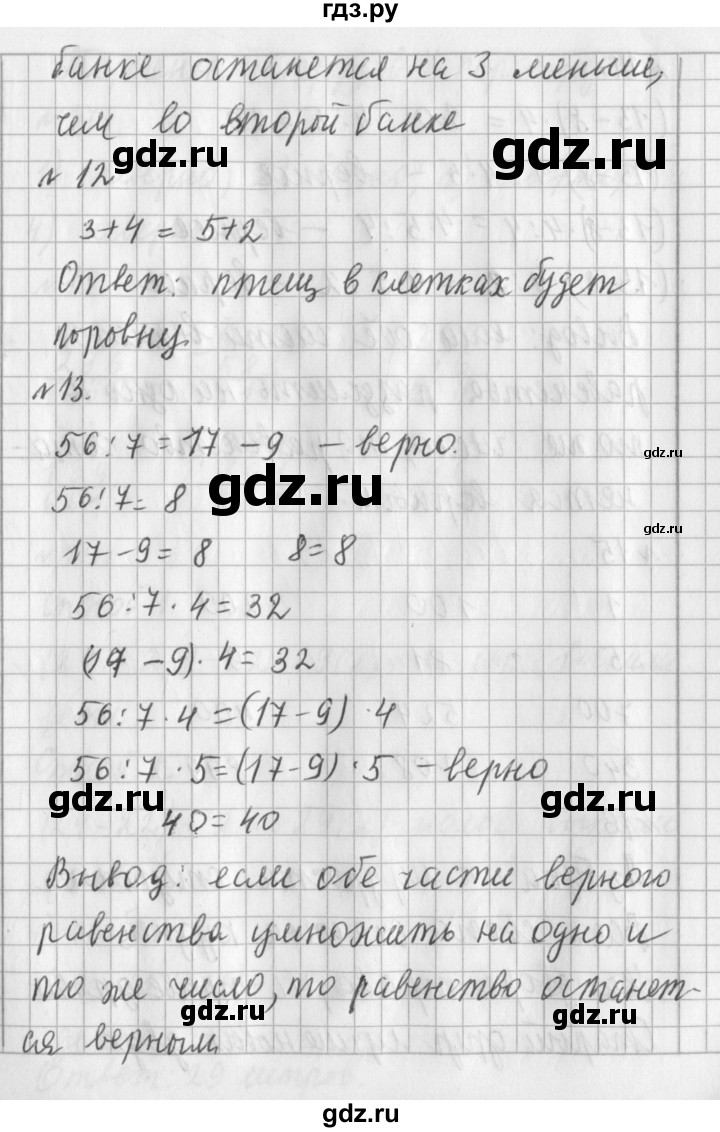 гдз.ру
банке останется на 3 меньше,
чем во второй банке
gdz.ru
gdz.ru
№ 12
3+4 = 5+2
Ответ: птиц в клетках будет
поровну.
№ 13.
56:7 = 17 - 9 - верно.
gdz.ru
gdz.ru
56:7 = 8
gdz.ru
17 - 9 = 8 8 = 8
56:7 · 4 = 32
(17 - 9) · 4 = 32
56:7 · 4 = (17 - 9) · 4
56:7 · 5 = (17 - 9) · 5 - верно
gdz.ru
gdz.ru
40 = 40
Вывод: если обе части верного
равенства умножить на одно и
то же число, то равенство останет-
gdz.ru
gdz.ru
ся верным.
gdz.ru